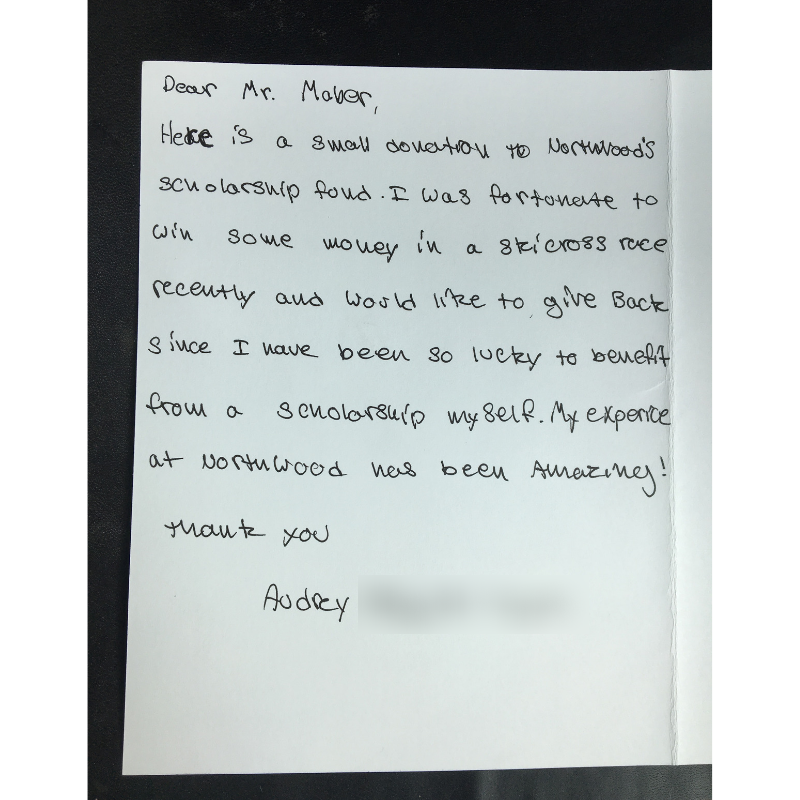 Dear Mr. Maher,
Here is a small donation to Northwood's
scholarship fund. I was fortunate to
win some money in a skicross race
recently and would like to give Back
since I have been so lucky to benefit
from a scholarship myself. My experice
at Northwood has been Amazing!
Thank you
Audrey